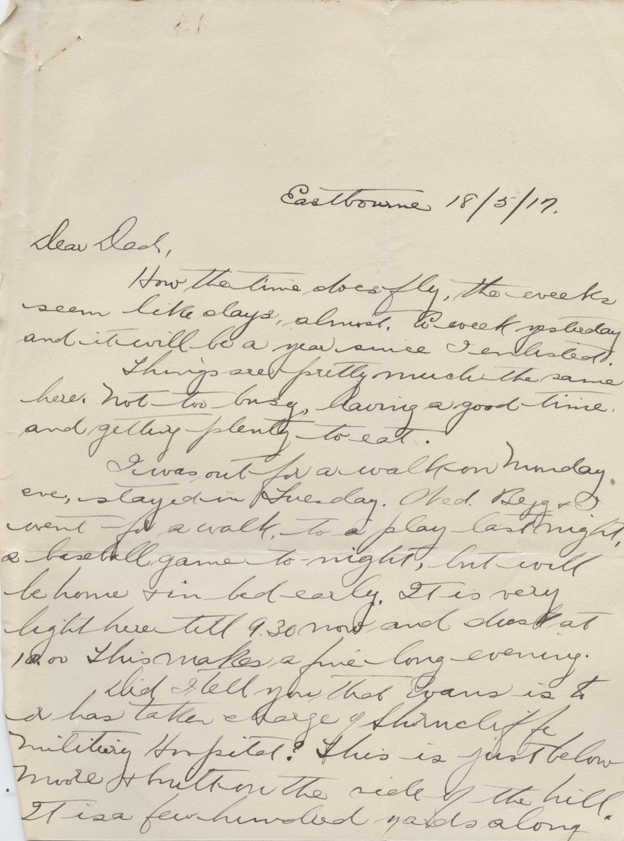 Eastbourne 18/5/17.
Dear Dad,
How the time does fly, the weeks
seem like days, almost. A week yesterday
and it will be a year since I enlisted.
Things are pretty much the same
here. Not too busy, having a good time.
and getting plenty to eat.
I was out for a walk on Monday
eve, stayed in Tuesday. Wed. Begg & I
went for a walk, to a play last night,
a baseball game to-night, but will
be home & in bed early. It is very
light here till 9.30 now and dusk at
10.00 This makes a fine long evening.
Did I tell you that Evans is
& has taken charge of Shorncliffe
Military Hospital? This is just below
Moore & built on the side of the hill.
It is a few hundred yards along